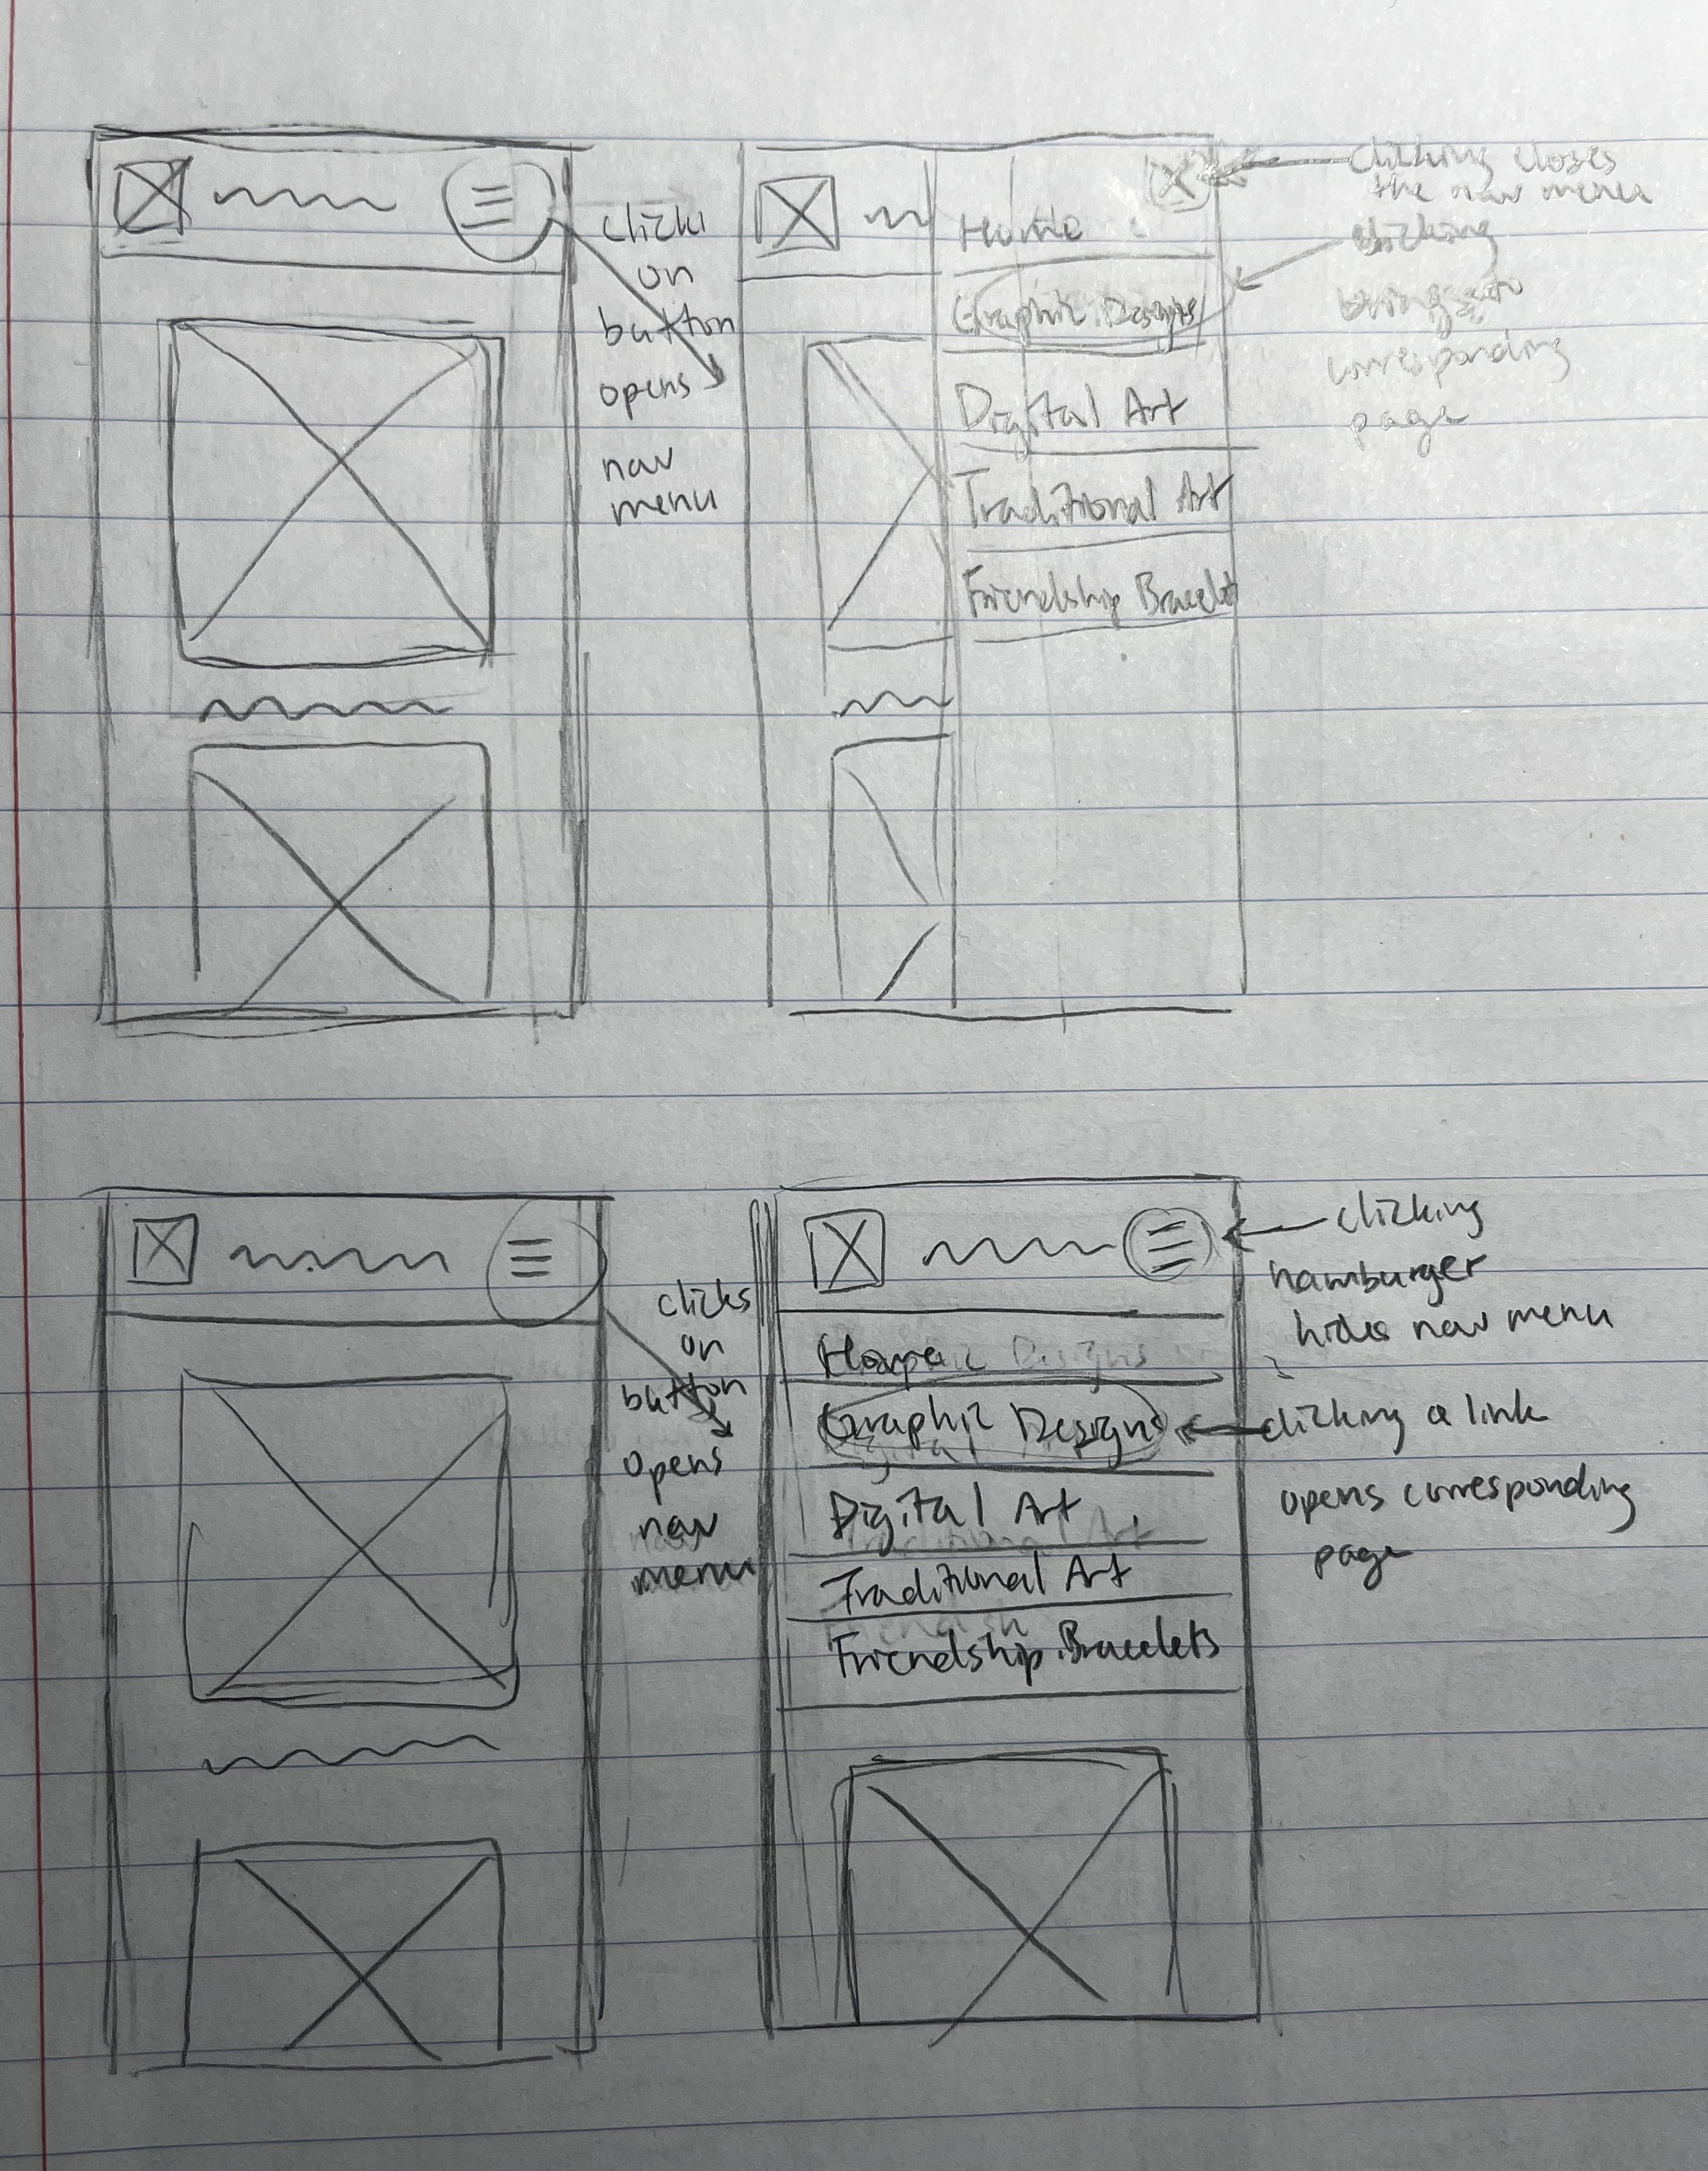 clicks
on
button
opens
nav
menu
Home
Graphic Designs
Digital Art
Traditional Art
Friendship Bracelet
clicking closes
the nav menu
clicking
brings to
corresponding
page
clicks
on
button
opens
nav
menu
Home
Graphic Designs
Digital Art
Traditional Art
Friendship Bracelets
clicking
hamburger
hides nav menu
clicking a link
opens corresponding
page